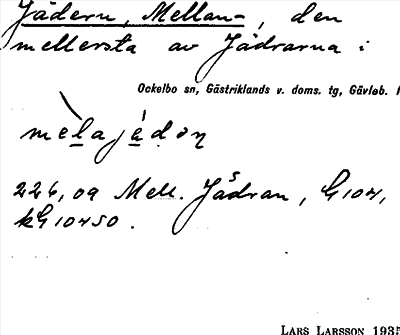 Jädern, Mellan-, den
mellersta av Jädrarna i
Ockelbo sn, Gästriklands v. doms. tg, Gävleb. l
melajédəɳ
226,09 Mell. Jädran, G104,
kG10450.
LARS LARSSON 1935